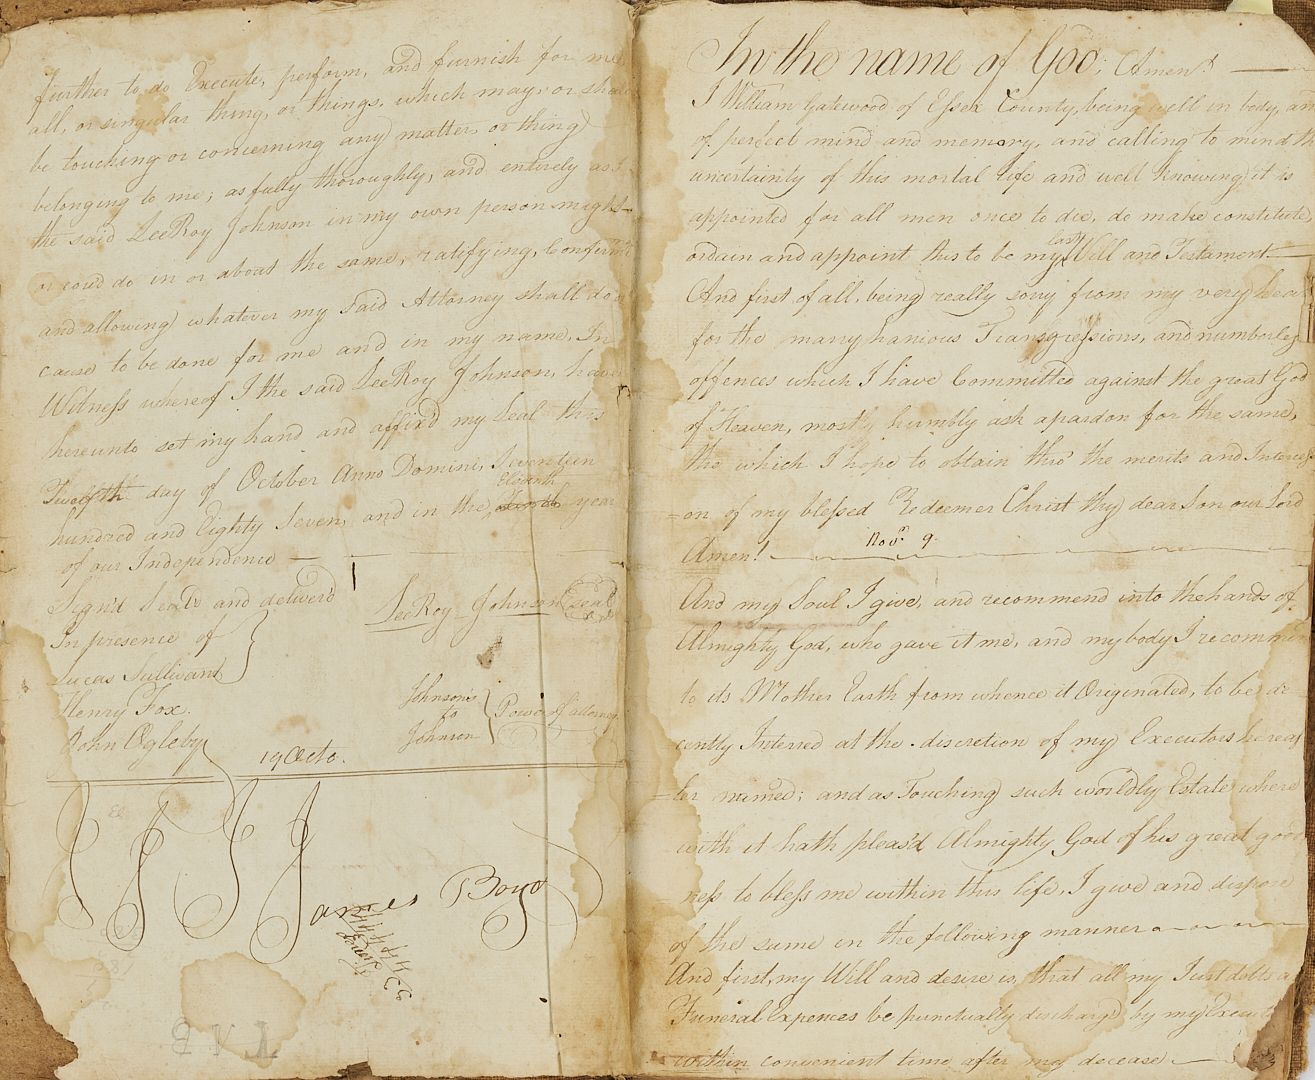 further to do Execute, perform, and furnish for me
all, or singular thing, or things, which may, or shall
be touching or concerning any matter, or thing
belonging to me; as fully thoroughly, and entirely as I
the said LeeRoy Johnson in my own person might
or coud do in or about the same, ratifying, Confirm
and allowing whatever my said Attorney shall do
cause to be done for me and in my name, In
Witness whereof I the said LeeRoy Johnson, have
hereunto set my hand and affix'd my Seal this
Twelfth day of October Anno Domini, Seventeen
Eleventh
hundred and Eighty Seven, and in the year
of our Independence
Sign'd Seal'd and deliver'd
In presence of
LeeRoy Johnson Seal
Lucas Sullivant
Henry Fox.
John Ogleby
Johnson's
to
Johnson
Power of attorney
19 Octo.
James Boyd
In the name of God, Amen!
I William Gatewood of Essex County, being well in body, an
of perfect mind and memory, and calling to mind th
uncertainty of this mortal Life and well knowing it is
appointed for all men once to die, do make constitute,
last
ordain and appoint this to be my Will and Testament.
And first of all, being really sorry from my very hea
for the many hanious Transgressions, and numberles
offences which I have Committed against the great God
of Heaven, most humbly ask apardon for the same,
the which I hope to obtain thro' the merits and Interces
=on of my blessed Redeemer Christ thy dear Son our Lord
Amen! Novr. 9
And my Soul I give, and recommend into the hands of
Almighty God, who gave it me, and my body I recomme
to its Mother Earth from whence it Originated, to be de
cently Interred at the discretion of my Executors hereaf
=ter named; and as Touching such worldly Estate where
with it hath pleas'd Almighty God of his great good
ness to bless me within this life, I give and dispose
of the same in the following manner
And first, my Will and desire is, that all my Just debts a
Funeral Expences be punctually discharg'd by my Execut
within convenient time after my decease